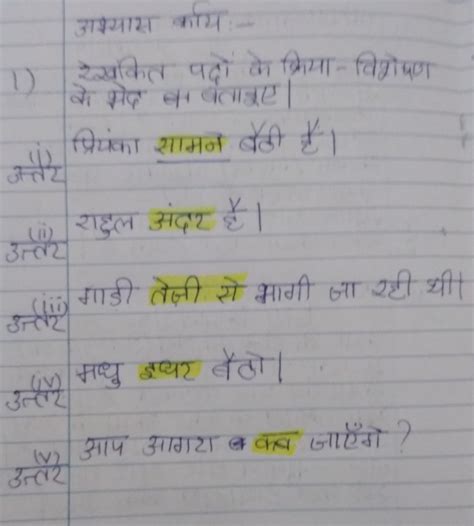 अभ्यास कार्य :-
1) रेखांकित पदों के क्रिया-विशेषण
के भेद बताइए।
(i) प्रियंका सामने बैठी है।
उत्तर
(ii) राहुल अंदर है।
उत्तर
(iii) गाड़ी तेज़ी से भागी जा रही थी।
उत्तर
(iv) मधु इधर बैठो।
उत्तर
(v) आप आगरा कब जाएँगे ?
उत्तर